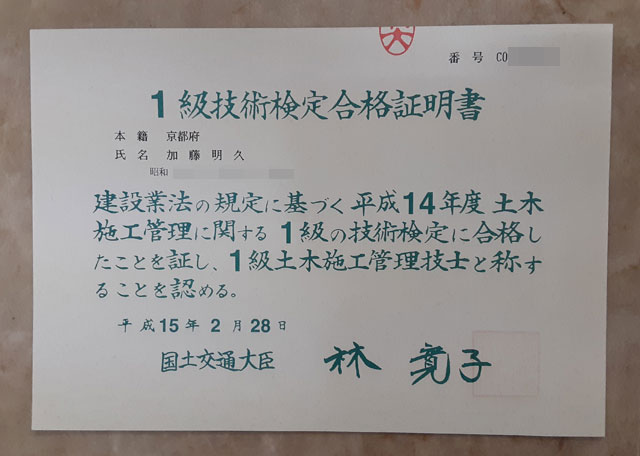 番号 CO
1級技術検定合格証明書
本籍 京都府
氏名 加藤明久
昭和
建設業法の規定に基づく平成14年度 土木
施工管理に関する 1級の技術検定に合格し
たことを証し、1級土木施工管理技士と称す
ることを認める。
平成15年2月28日
国土交通大臣 林 寛子